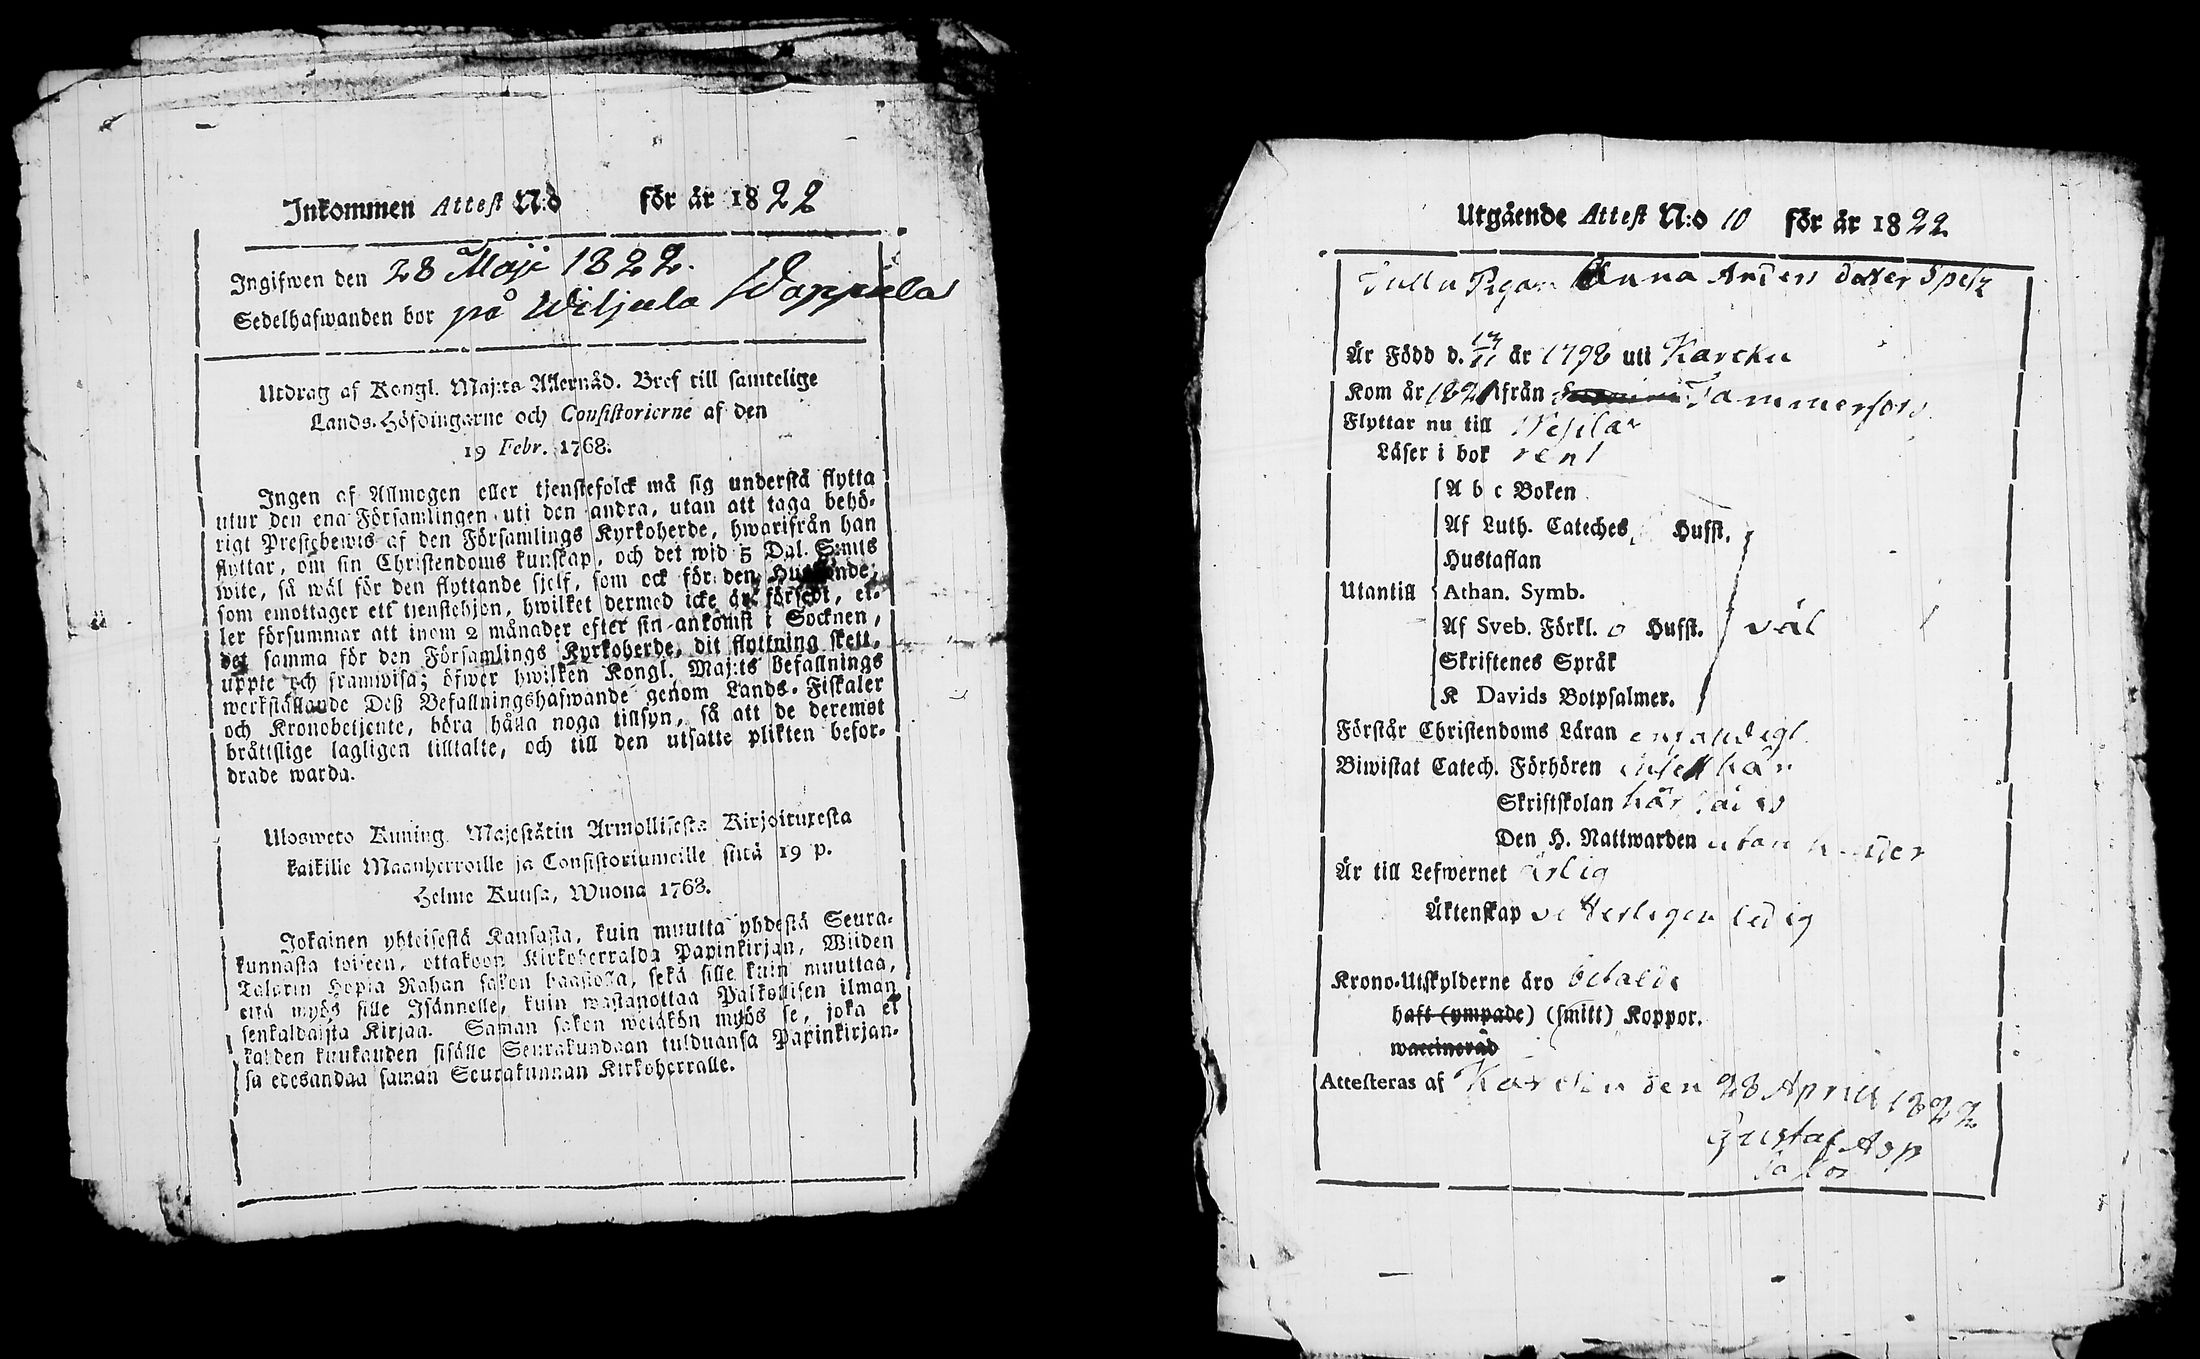 Inkommen Attest N:o för år 1822
Ingifwen den 28 Maji 1822.
Sedelhafwanden bor på Wiljala Wappula
Utdrag af Kongl. Maj:ts Allernåd. Bref till samtelige
Lands-Höfdingarne och Consistorierne af den
19 Febr. 1768.
Ingen af Allmogen eller tjenstefolck må sig understå flytta
utur den ena Församlingen uti den andra, utan att taga behö-
rigt Prestebewis af den Församlings Kyrkoherde, hwarifrån han
flyttar, om sin Christendoms kunskap, och det wid 5 Dal. S:mts
wite, så wäl för den flyttande sjelf, som ock för den Husbonde,
som emottager ett tjenstehjon, hwilket dermed icke är försedt, el-
ler försummar att inom 2 månader efter sin ankomst i Socknen,
det samma för den Församlings Kyrkoherde, dit flyttning skett,
uppte och framwisa; öfwer hwilken Kongl. Maj:ts Befallnings
werkställande Deß Befallningshafwande genom Lands-Fiskaler
och Kronobetjente, böra hålla noga tillsyn, så att de deremot
bråttslige lagligen tilltalte, och till den utsatte plikten befor-
drade warda.
Ulosweto Kuning. Majestätin Armollisesta Kirjoituxesta
kaikille Maanherroille ja Consistoriumeille siitä 19 p.
Helme Kuusa, Wuona 1768.
Jokainen yhteisestä Kansasta, kuin muutta yhdestä Seura-
kunnasta toiseen, ottakoon Kirkoherralda Papinkirjan, Wiiden
Talarin Hopia Rahan sakon haastolla, sekä sille kuin muuttaa,
että myös sille Isännelle, kuin wastanottaa Palkollisen ilman
senkaldaista Kirjaa. Saman sakon wetäkön myös se, joka ei
kahden kuukauden sisälle Seurakundaan tulduansa Papinkirjan-
sa edesandaa saman Seurakunnan Kirkoherralle.
Utgående Attest N:o 10 för år 1822
Pigan Anna Anders dotter Spetz
Är Född d. 13/11 år 1798 uti Karcku
Kom år 1821 ifrån Tammerfors
Flyttar nu till Wesilax
Läser i bok rent
A b c Boken
Af Luth. Cateches Hufst.
Hustaflan
Utantill Athan. Symb.
Af Sveb. Förkl. o Hufst. wäl
Skriftenes Språk
K Davids Botpsalmer.
Förstår Christendoms Läran
Biwistat Catech. Förhören
Skriftskolan
Den H. Nattwarden utan
Är till Lefwernet ärlig
Äktenskap wetterligen ledig
Krono-Utskylderne äro betalde
haft (ympade) (smitt) Koppor.
waccinerad
Attesteras af Karcku den 28 April 1822
Gustaf Asp